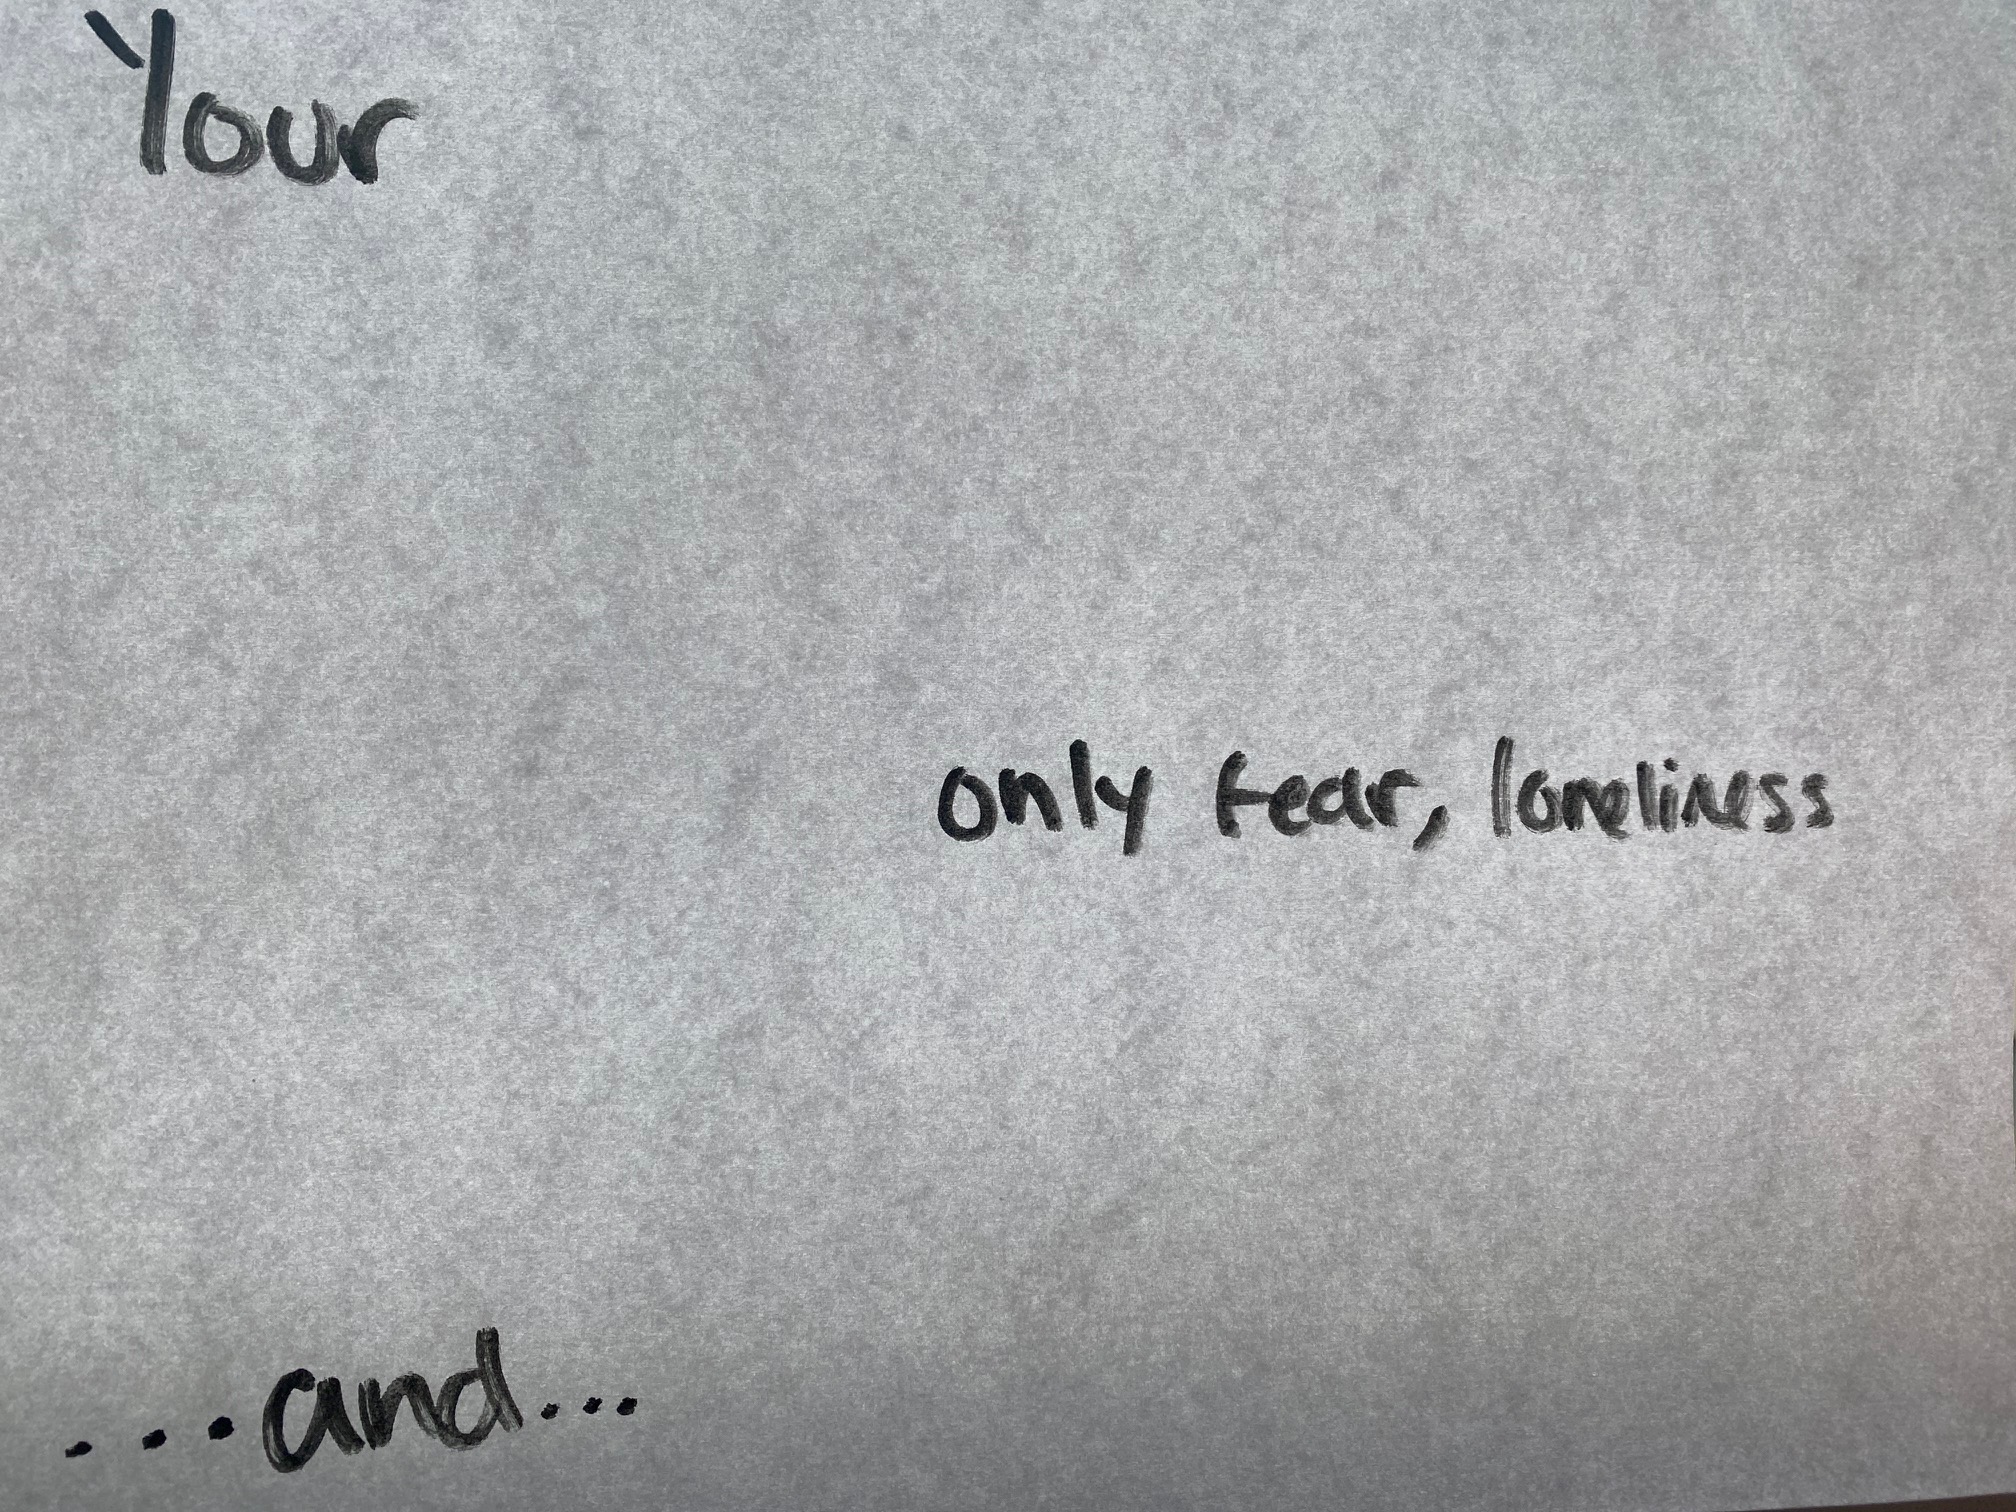 Your
only fear, loneliness
...and...